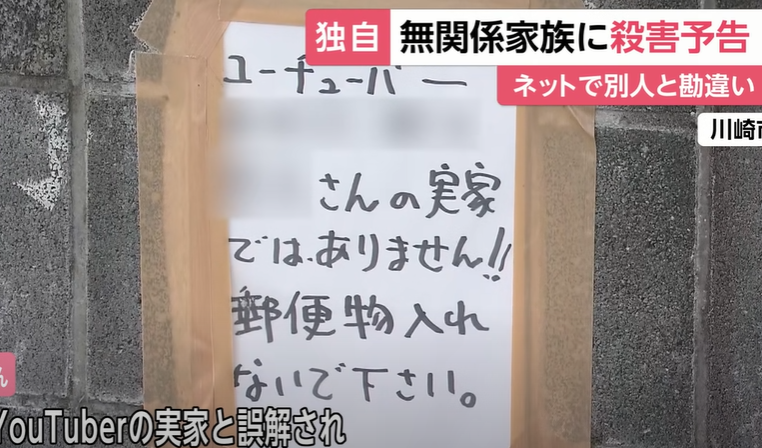 独自
無関係家族に殺害予告
ネットで別人と勘違い
川崎市
ユーチューバー
さんの実家
では、ありません!!
郵便物入れ
ないで下さい。
ん
YouTuberの実家と誤解され